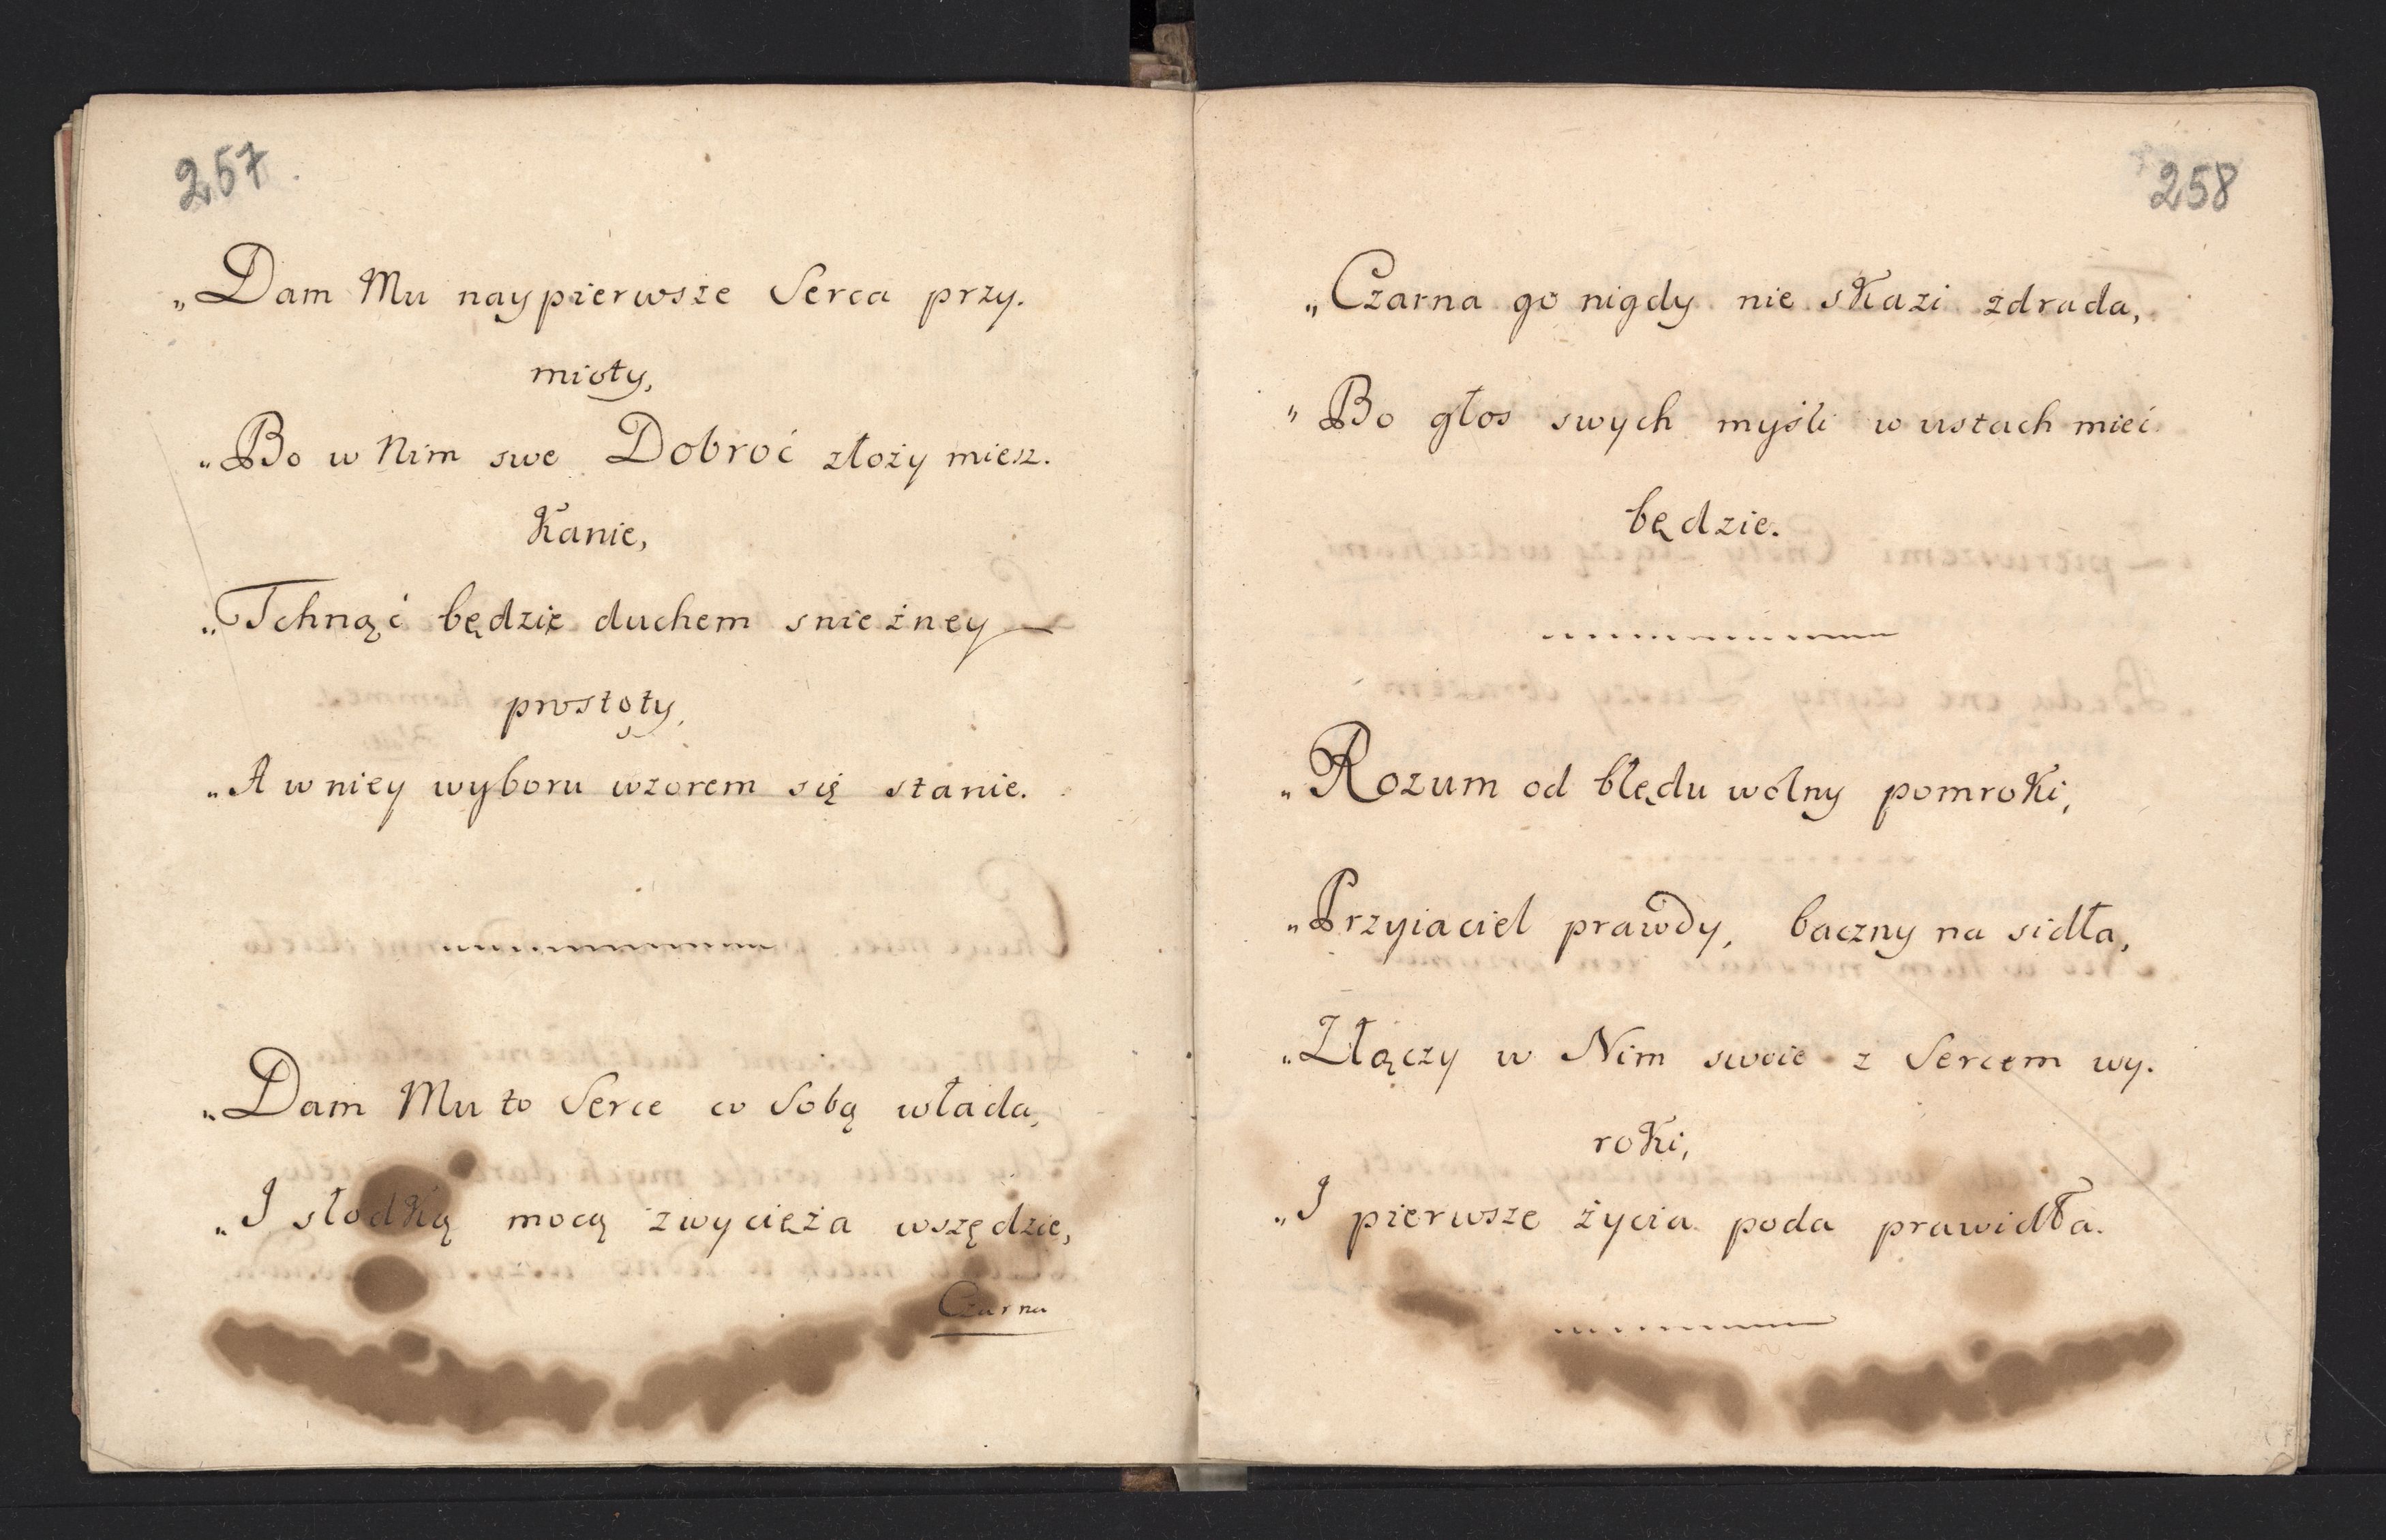 257.
„Dam Mu naypierwsze Serca przy.
mioty,
„Bo w Nim swe Dobroć złoży miesz.
kanie,
„Tchnąć będzie duchem snieżney
prostoty,
„A w niey wyboru wzorem się stanie.
„Dam Mu to Serce co Sobą włada,
„I słodką mocą zwycięża wszędzie,
Czarna
258
„Czarna go nigdy nie skazi zdrada,
„Bo głos swych myśli w ustach mieć
będzie.
„Rozum od błędu wolny pomroki,
„Przyiaciel prawdy, baczny na sidła,
„Złączy w Nim swoie z Sercem wy.
roki,
„I pierwsze życia poda prawidła.